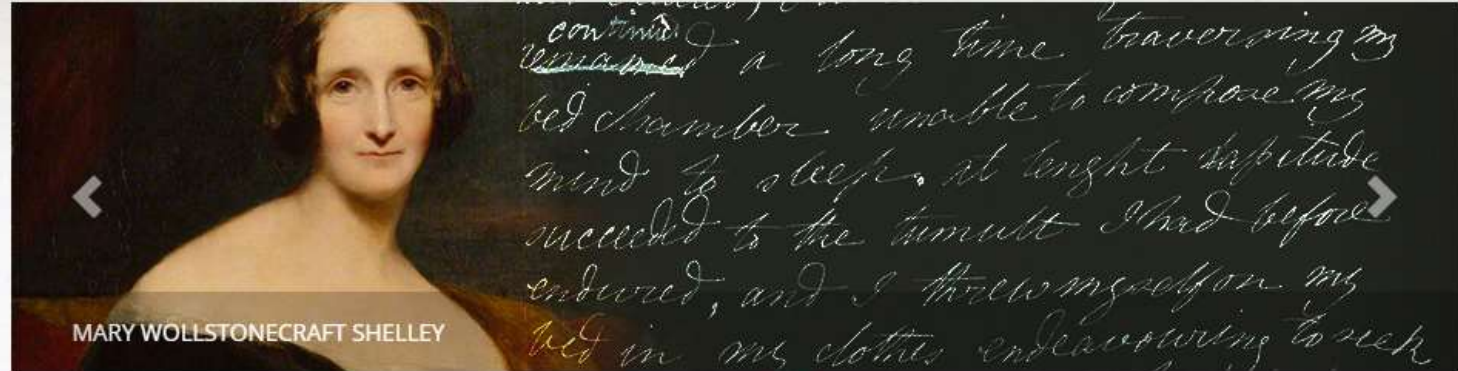 continued
remained a long time traversing my
bed chamber unable to compose my
mind to sleep. at lenght lassitude
succeeded to the tumult I had before
endured, and I threw myself on my
bed in my clothes endeavouring to seek
MARY WOLLSTONECRAFT SHELLEY